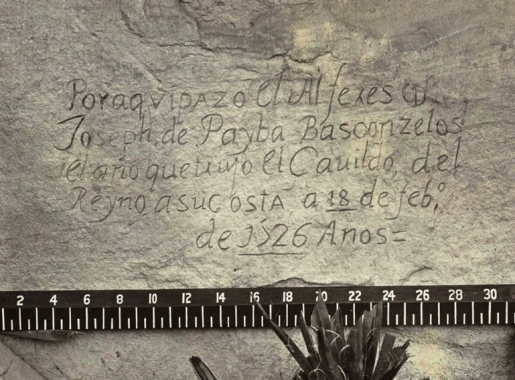 Por aqui pazo el Alferes Dn
Joseph de Payba Basconzelos
el año que trujo el Cauildo, del
Reyno a su costa a 18 de febo
de 1526 Años=
2 4 6 8 10 12 14 16 18 20 22 24 26 28 30